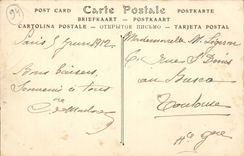 94
POST CARD Carte Postale POSTKARTE
BRIEFKAART - POSTKAART
CARTOLINA POSTALE - ОТКРЫТОЕ ПИСЬМО - TARJETA POSTAL
Paris 5 1912
Bons baisers
Souvenir à tous
Mademoiselle M.
St Denis
au Busca
Toulouse
Hte Gne